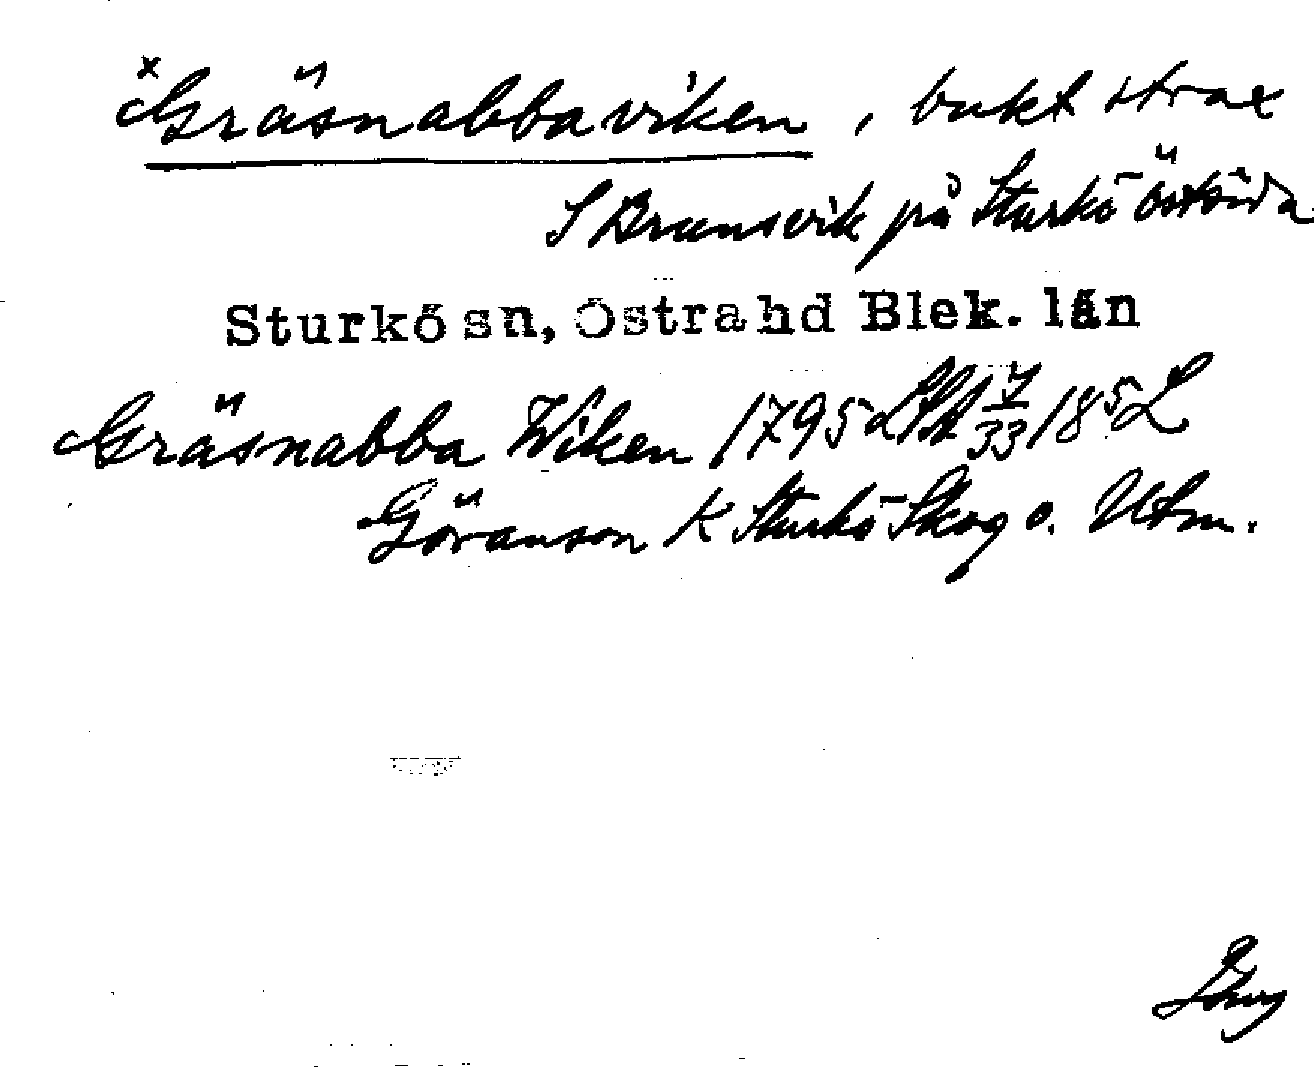 x Gräsnabbaviken, bukt strax
S Brunsvik på Sturkö östsida
Sturkö sn, Östra hd Blek. län
Gräsnabba Wiken 1795 LSA 7/33 18⁵ L
Göranson K Sturkö Skog o. Utm.